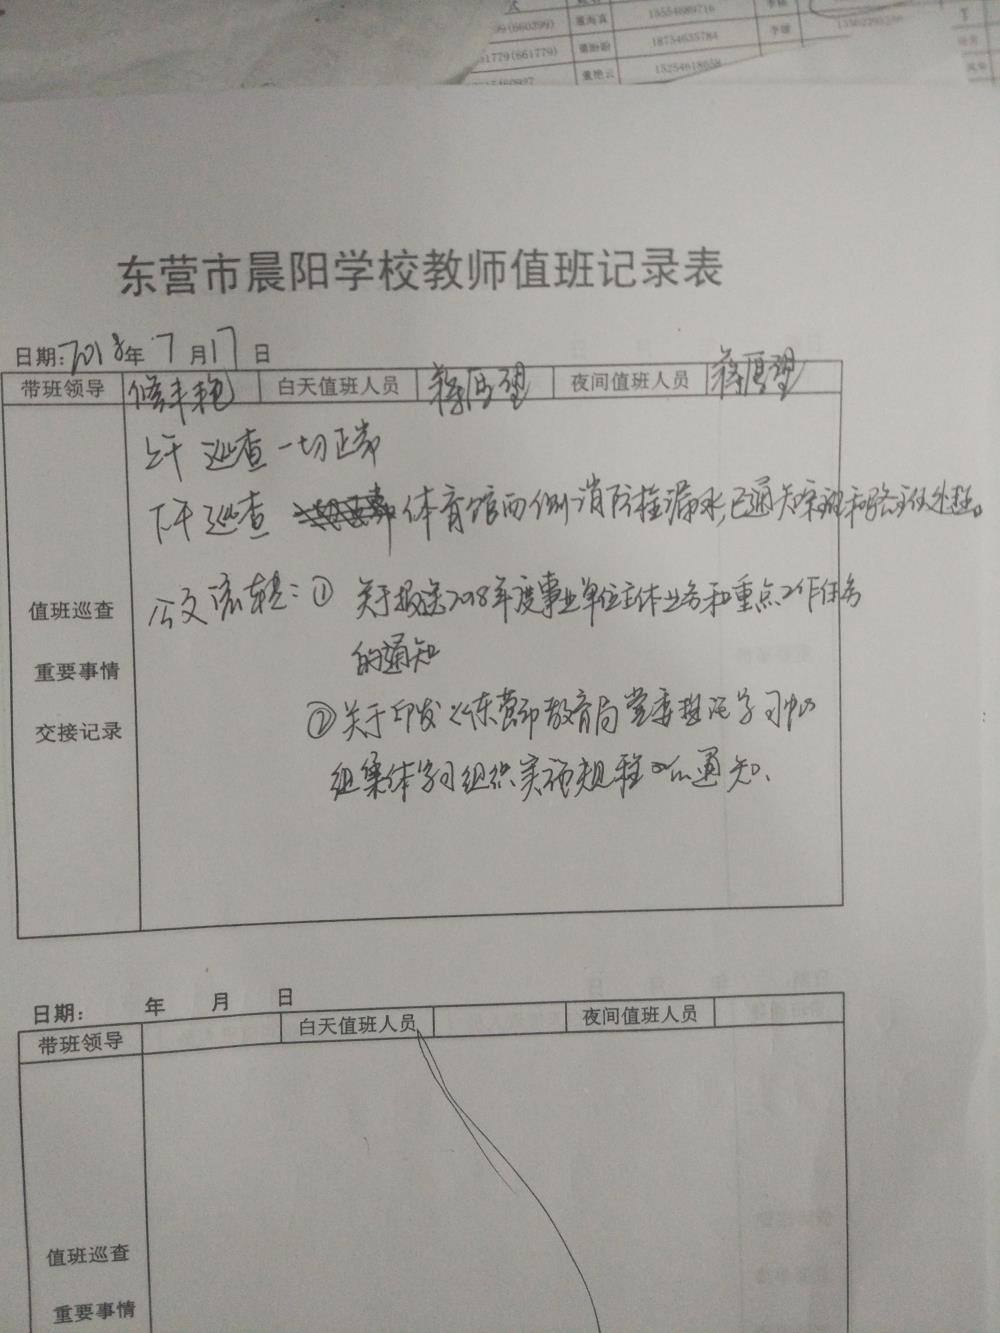 99(660399) 董海真 15554689716 李
1779(661779) 董盼盼 18754635784 李娜
董艳云 15254618658
东营市晨阳学校教师值班记录表
日期:2018年7月17日
带班领导 修丰艳 白天值班人员 蒋厚望 夜间值班人员 蒋厚望
上午 巡查 一切正常
下午 巡查 体育馆西侧消防栓漏水,已通知 和 主任处理。
公文流转:① 关于报送2018年度事业单位主体业务和重点工作任务
的通知
②关于印发《东营市教育局党委理论学习中心
组集体学习组织实施规程》的通知、
值班巡查
重要事情
交接记录
日期: 年 月 日
带班领导 白天值班人员 夜间值班人员
值班巡查
重要事情